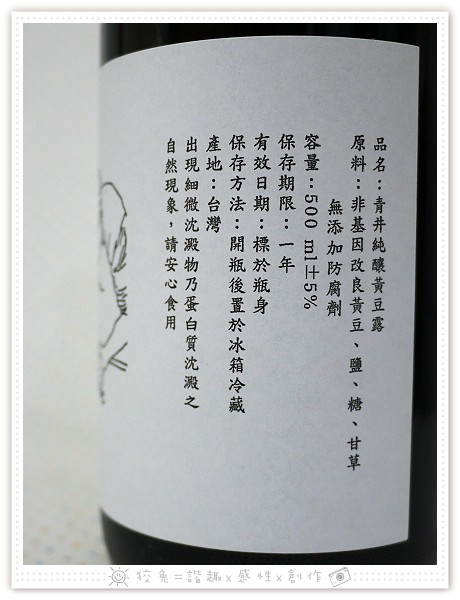 品名：青井純釀黃豆露
原料：非基因改良黃豆、鹽、糖、甘草
無添加防腐劑
容量：500 ml±5%
保存期限：一年
有效日期：標於瓶身
保存方法：開瓶後置於冰箱冷藏
產地：台灣
出現細微沈澱物乃蛋白質沈澱之
自然現象，請安心食用
狡兔=諧趣x感性x創作